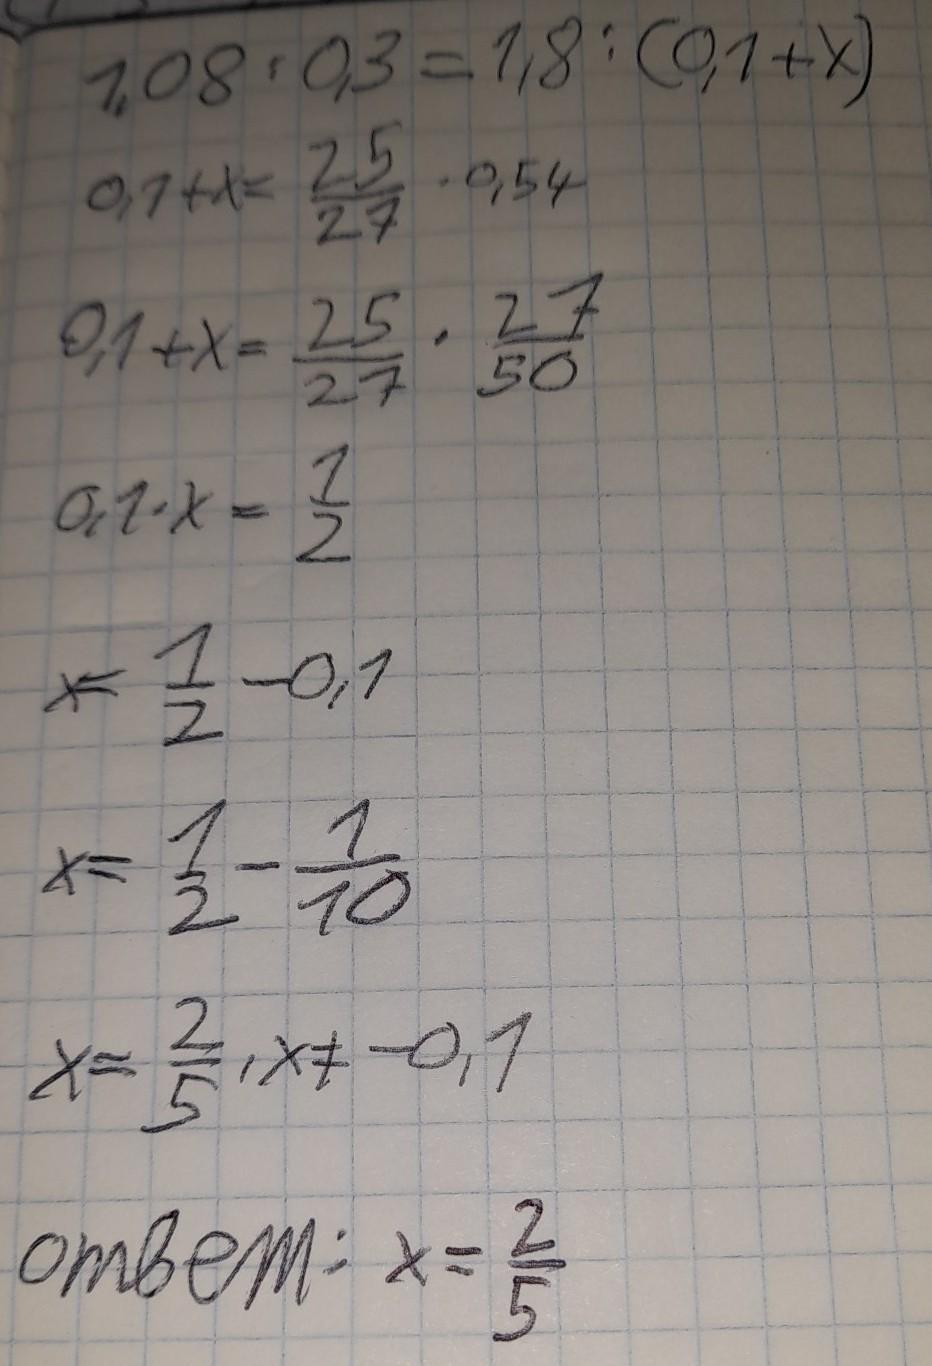 1,08 : 0,3 = 1,8 : (0,1+x)
0,1+x = 25/27 · 0,54
0,1+x = 25/27 · 27/50
0,1·x = 1/2
x = 1/2 - 0,1
x = 1/2 - 1/10
x = 2/5, x ≠ -0,1
ответ: x = 2/5